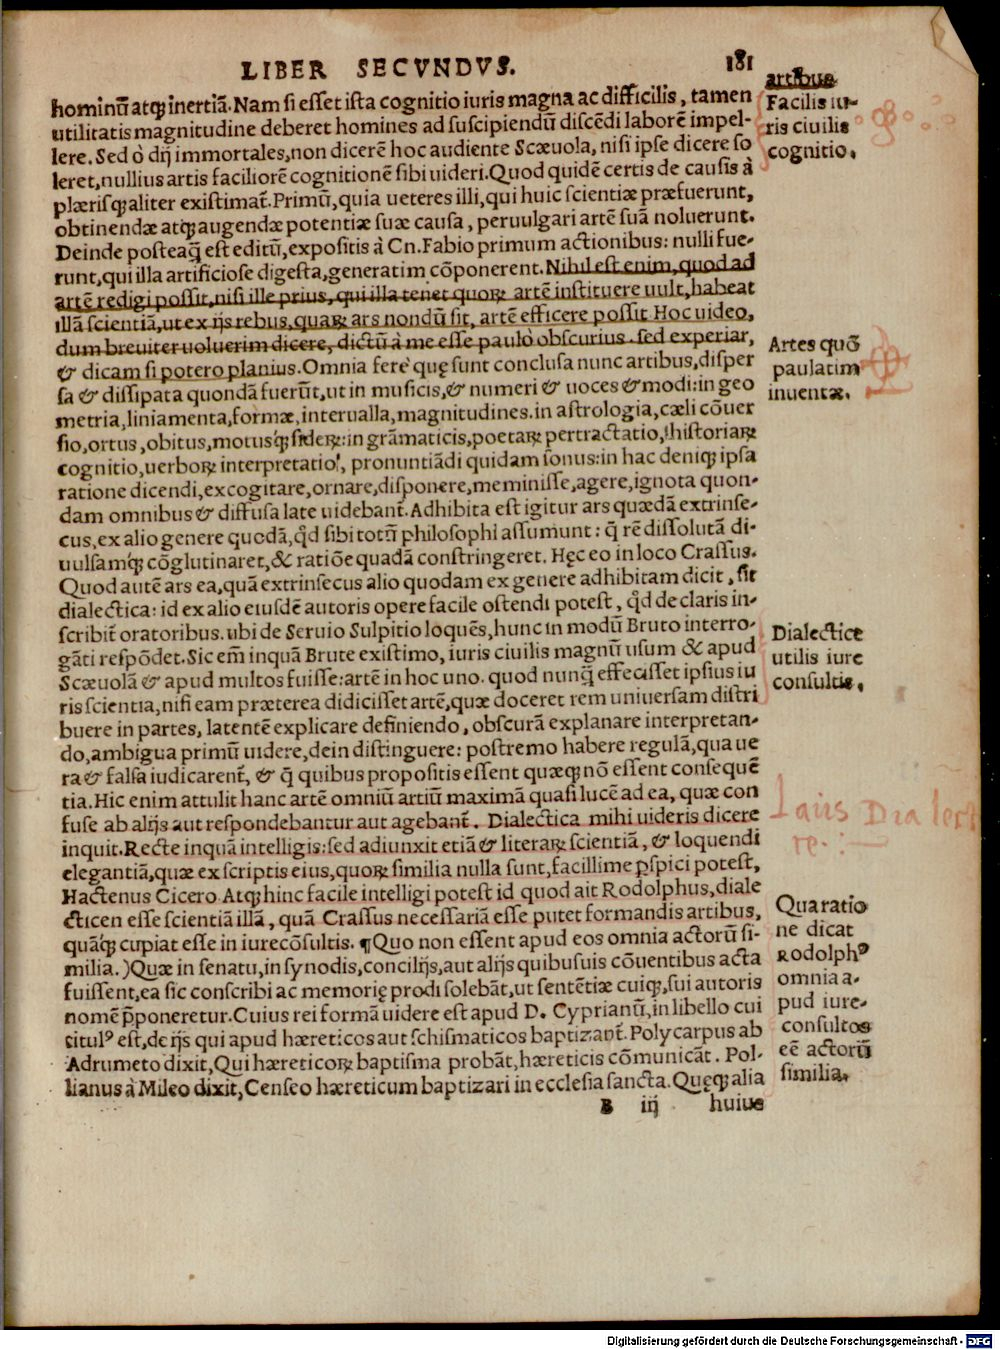 LIBER SECVNDVS. 181
hominū atq; inertiā. Nam si esset ista cognitio iuris magna ac difficilis, tamen
utilitatis magnitudine deberet homines ad suscipiendū discēdi laborē impel-
lere. Sed ò dij immortales, non dicerē hoc audiente Scæuola, nisi ipse dicere so
leret, nullius artis faciliorē cognitionē sibi uideri. Quod quidē certis de causis à
plærisq; aliter existimat̄. Primū, quia ueteres illi, qui huic scientiæ præfuerunt,
obtinendæ atq; augendæ potentiæ suæ causa, peruulgari artē suā noluerunt.
Deinde posteaq̄ est editū, expositis à Cn. Fabio primum actionibus: nulli fue-
runt, qui illa artificiose digesta, generatim cōponerent. Nihil est enim, quod ad
artē redigi possit, nisi ille prius, qui illa tenet quorꝝ artē instituere uult, habeat
illā scientiā, ut ex ijs rebus, quarꝝ ars nondū sit, artē efficere possit Hoc uideo,
dum breuiter uoluerim dicere, dictū à me esse paulò obscurius. sed experiar,
& dicam si potero planius. Omnia ferè quę sunt conclusa nunc artibus, disper
sa & dissipata quondā fuerūt, ut in musicis, & numeri & uoces & modi: in geo
metria, liniamenta, formæ, interualla, magnitudines. in astrologia, cæli cōuer
sio, ortus, obitus, motusq; siderꝝ: in grāmaticis, poetarꝝ pertractatio, historiarꝝ
cognitio, uerborꝝ interpretatio, pronuntiādi quidam sonus: in hac deniq; ipsa
ratione dicendi, excogitare, ornare, disponere, meminisse, agere, ignota quon-
dam omnibus & diffusa late uidebant̄. Adhibita est igitur ars quædā extrinse-
cus, ex alio genere quodā, qd̛ sibi totū philosophi assumunt: q̄ rē dissolutā di-
uulsamq; cōglutinaret, & ratiōe quadā constringeret. Hęc eo in loco Crassus.
Quod autē ars ea, quā extrinsecus alio quodam ex genere adhibitam dicit, sit
dialectica: id ex alio eiusdē autoris opere facile ostendi potest, qd̛ de claris in-
scribit̄ oratoribus. ubi de Seruio Sulpitio loquēs, hunc in modū Bruto interro-
gāti respōdet. Sic em̄ inquā Brute existimo, iuris ciuilis magnū usum & apud
Scæuolā & apud multos fuisse: artē in hoc uno. quod nunq̄ effecisset ipsius iu
ris scientia, nisi eam præterea didicisset artē, quæ doceret rem uniuersam distri
buere in partes, latentē explicare definiendo, obscurā explanare interpretan-
do, ambigua primū uidere, dein distinguere: postremo habere regulā, qua ue
ra & falsa iudicarent̄, & q̄ quibus propositis essent quæq; nō essent consequē
tia. Hic enim attulit hanc artē omniū artiū maximā quasi lucē ad ea, quæ con
fuse ab alijs aut respondebantur aut agebant̄. Dialectica mihi uideris dicere
inquit. Recte inquā intelligis: sed adiunxit etiā & literarꝝ scientiā, & loquendi
elegantiā, quæ ex scriptis eius, quorꝝ similia nulla sunt, facillime ꝑspici potest,
Hactenus Cicero Atq; hinc facile intelligi potest id quod ait Rodolphus, diale
cticen esse scientiā illā, quā Crassus necessariā esse putet formandis artibus,
quāq; cupiat esse in iurecōsultis. ¶Quo non essent apud eos omnia actorū si-
milia.) Quæ in senatu, in synodis, concilijs, aut alijs quibusuis cōuentibus acta
fuissent, ea sic conscribi ac memorię prodi solebāt, ut sentētiæ cuiq;, sui autoris
nomē p̄poneretur. Cuius rei formā uidere est apud D. Cyprianū, in libello cui
titulꝰ est, de ijs qui apud hæreticos aut schismaticos baptizant̄. Polycarpus ab
Adrumeto dixit, Qui hæreticorꝝ baptisma probāt, hæreticis cōmunicāt. Pol-
lianus à Mileo dixit, Censeo hæreticum baptizari in ecclesia sancta. Quęq; alia
B iij huius
artibus
Facilis iu-
ris ciuilis
cognitio.
Artes quō
paulatim
inuentæ.
Dialectice
utilis iure
consultis.
Laus Dialecti
Qua ratio
ne dicat
Rodolphꝰ
omnia a-
pud iure-
consultos
eē actorū
similia.
Digitalisierung gefördert durch die Deutsche Forschungsgemeinschaft - DFG